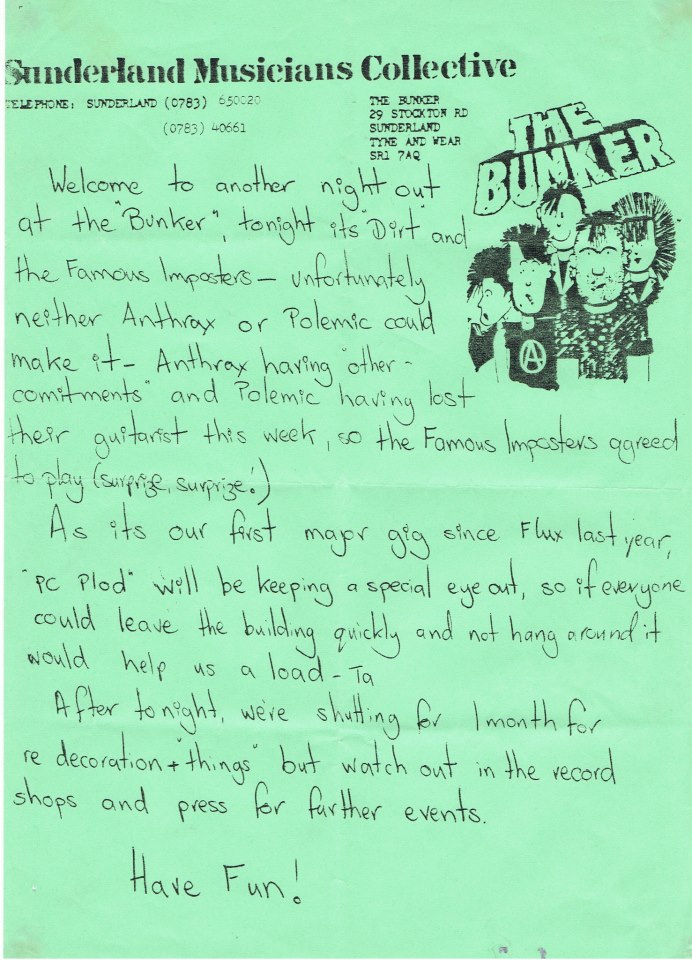 Sunderland Musicians Collective
TELEPHONE: SUNDERLAND (0783) 650020
(0783) 40661
THE BUNKER
29 STOCKTON RD
SUNDERLAND
TYNE AND WEAR
SR1 7AQ
THE
BUNKER
Welcome to another night out
at the "Bunker", tonight its "Dirt" and
the Famous Imposters – unfortunately
neither Anthrax or Polemic could
make it – Anthrax having "other -
comitments" and Polemic having lost
their guitarist this week, so the Famous Imposters agreed
to play (surprize, surprize!)
As its our first major gig since Flux last year,
"PC Plod" will be keeping a special eye out, so if everyone
could leave the building quickly and not hang around it
would help us a load - Ta
After tonight, we're shutting for 1 month for
re decoration + "things" but watch out in the record
shops and press for further events.
Have Fun!